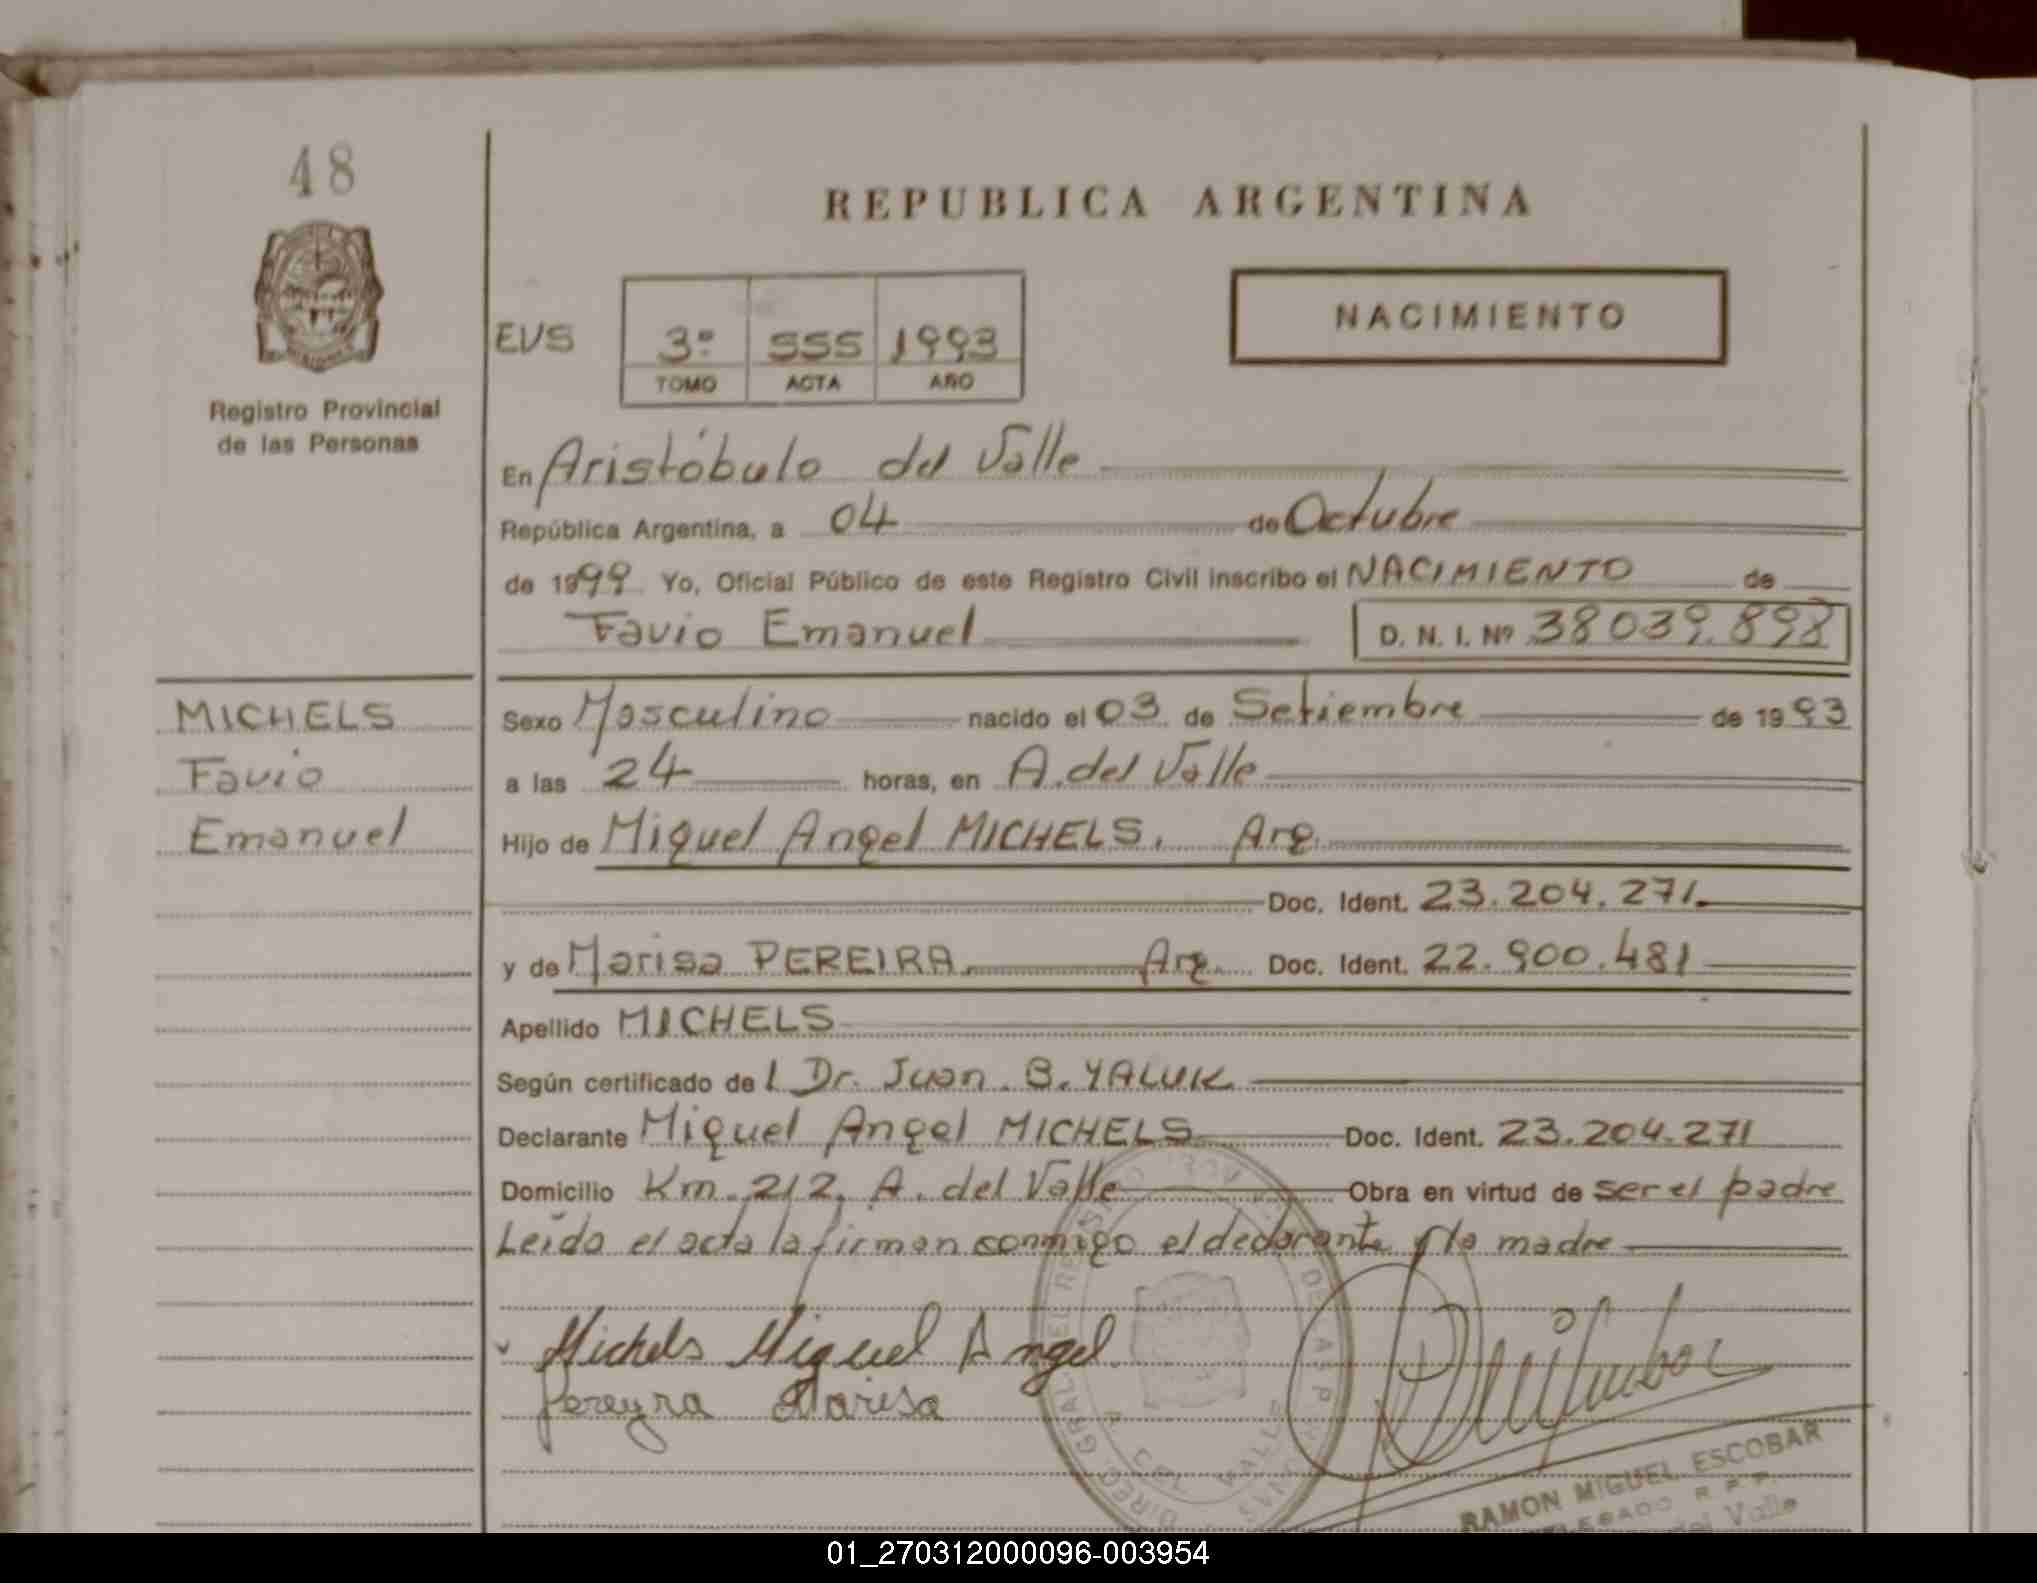 48
REPUBLICA ARGENTINA
NACIMIENTO
EVS
3º 555 1993
TOMO ACTA AÑO
Registro Provincial
de las Personas
En Aristóbulo del Valle
República Argentina, a 04 de Octubre
de 1999 Yo, Oficial Público de este Registro Civil inscribo el NACIMIENTO de
Favio Emanuel D. N. I. Nº 38039.898
MICHELS
Favio
Emanuel
Sexo Masculino nacido el 03 de Setiembre de 1993
a las 24 horas, en A. del Valle
Hijo de Miguel Angel MICHELS. Arg.
Doc. Ident. 23.204.271.
y de Marisa PEREIRA. Arg. Doc. Ident. 22.900.481
Apellido MICHELS
Según certificado del Dr. Juan B. YALUK
Declarante Miguel Angel MICHELS Doc. Ident. 23.204.271
Domicilio Km. 212, A. del Valle Obra en virtud de ser el padre
Leída el acta la firman conmigo el declarante y la madre
Michels Miguel Angel
Pereyra Marisa
RAMON MIGUEL ESCOBAR
del Valle
01_270312000096-003954